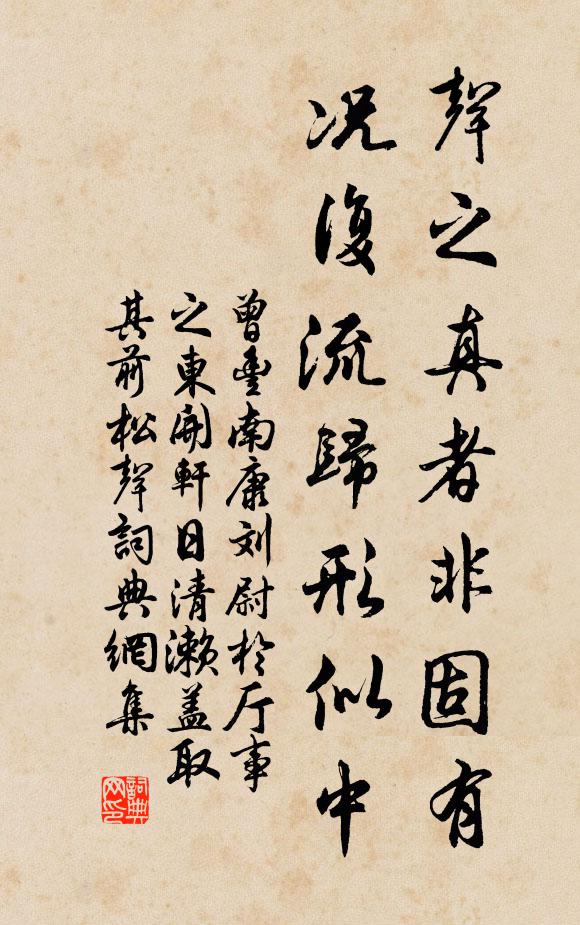 聲之真者非固有
况復流歸形似中
曾豐南康刘尉於厅事
之東開軒日清濑盖取
其前松聲詞典網集
詞典网印